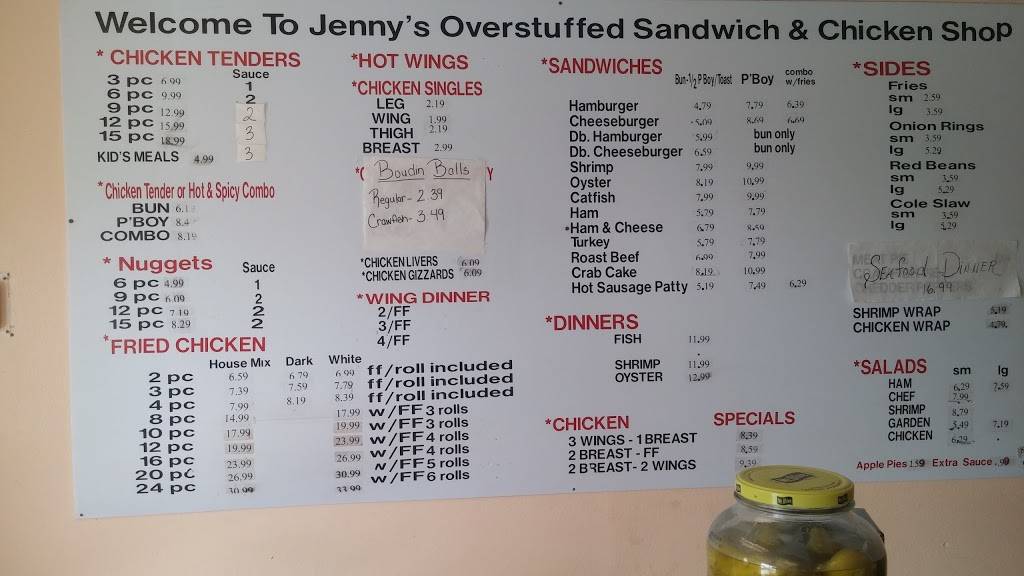 Welcome To Jenny's Overstuffed Sandwich & Chicken Shop
* CHICKEN TENDERS
Sauce
3 pc 6.99 1
6 pc 9.99 2
9 pc 12.99 2
12 pc 15.99 3
15 pc 18.99 3
KID'S MEALS 4.99
* Chicken Tender or Hot & Spicy Combo
BUN 6.1
P'BOY 8.4
COMBO 8.19
* Nuggets Sauce
6 pc 4.99 1
9 pc 6.09 2
12 pc 7.19 2
15 pc 8.29 2
*FRIED CHICKEN
House Mix Dark White
2 pc 6.59 6.79 6.99 ff/roll included
3 pc 7.39 7.59 7.79 ff/roll included
4 pc 7.99 8.19 8.39 ff/roll included
8 pc 14.99 17.99 w/FF 3 rolls
10 pc 17.99 19.99 w/FF 3 rolls
12 pc 19.99 23.99 w/FF 4 rolls
16 pc 23.99 26.99 w/FF 4 rolls
20 pc 26.99 30.99 w/FF 5 rolls
24 pc 30.99 33.99 w/FF 6 rolls
*HOT WINGS
*CHICKEN SINGLES
LEG 2.19
WING 1.99
THIGH 2.19
BREAST 2.99
Boudin Balls
Regular - 2.39
Crawfish - 3.49
*CHICKEN LIVERS 6.09
*CHICKEN GIZZARDS 6.09
*WING DINNER
2/FF
3/FF
4/FF
*SANDWICHES Bun-½ P'Boy/Toast P'BOY combo w/fries
Hamburger 4.79 7.79 6.39
Cheeseburger 5.09 8.69 6.69
Db. Hamburger 5.99 bun only
Db. Cheeseburger 6.59 bun only
Shrimp 7.99 9.99
Oyster 8.19 10.99
Catfish 7.99 9.99
Ham 5.79 7.79
*Ham & Cheese 6.79 8.59
Turkey 5.79 7.79
Roast Beef 6.99 7.99
Crab Cake 8.19 10.99
Hot Sausage Patty 5.19 7.49 6.29
*DINNERS
FISH 11.99
SHRIMP 11.99
OYSTER 12.99
*CHICKEN SPECIALS
3 WINGS - 1 BREAST 8.39
2 BREAST - FF 8.59
2 BREAST - 2 WINGS 9.39
*SIDES
Fries
sm 2.59
lg 3.59
Onion Rings
sm 3.59
lg 5.29
Red Beans
sm 3.59
lg 5.29
Cole Slaw
sm 3.59
lg 5.29
Seafood Dinner
16.99
SHRIMP WRAP 5.19
CHICKEN WRAP 4.79
*SALADS sm lg
HAM 6.29 7.59
CHEF 7.99
SHRIMP 8.79
GARDEN 3.49 7.19
CHICKEN 6.29
Apple Pies 1.59 Extra Sauce .99